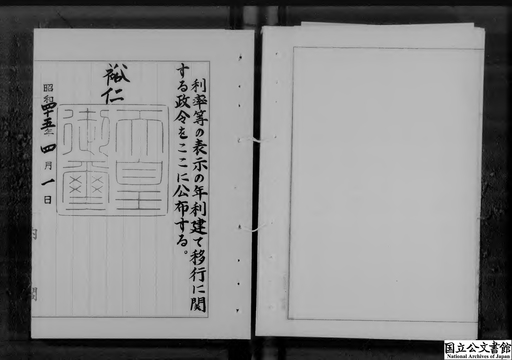 利率等の表示の年利建て移行に関
する政令をここに公布する。
裕仁
天皇
御璽
昭和四十五年四月一日
内閣
国立公文書館
National Archives of Japan